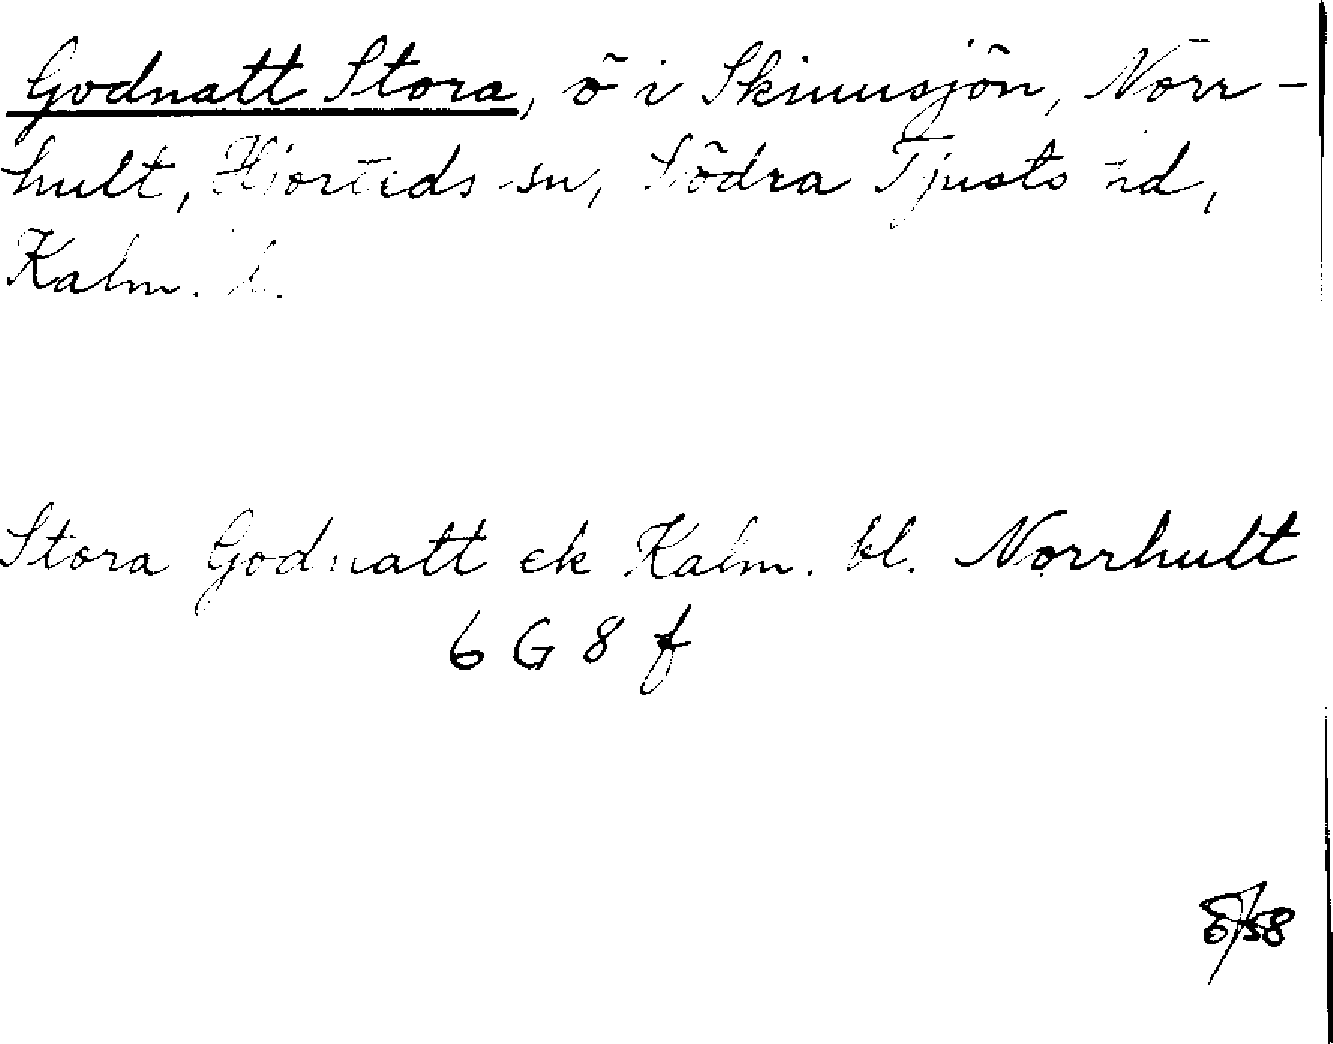 Godnatt Stora, ö i Skiuusjön, Norr-
hult, Hjorteds sn, Södra Tjusts hd,
Kalm. l.
Stora Godnatt ek Kalm. bl. Norrhult
6 G 8 f